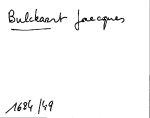 Bulckaert Jacques
1684/49